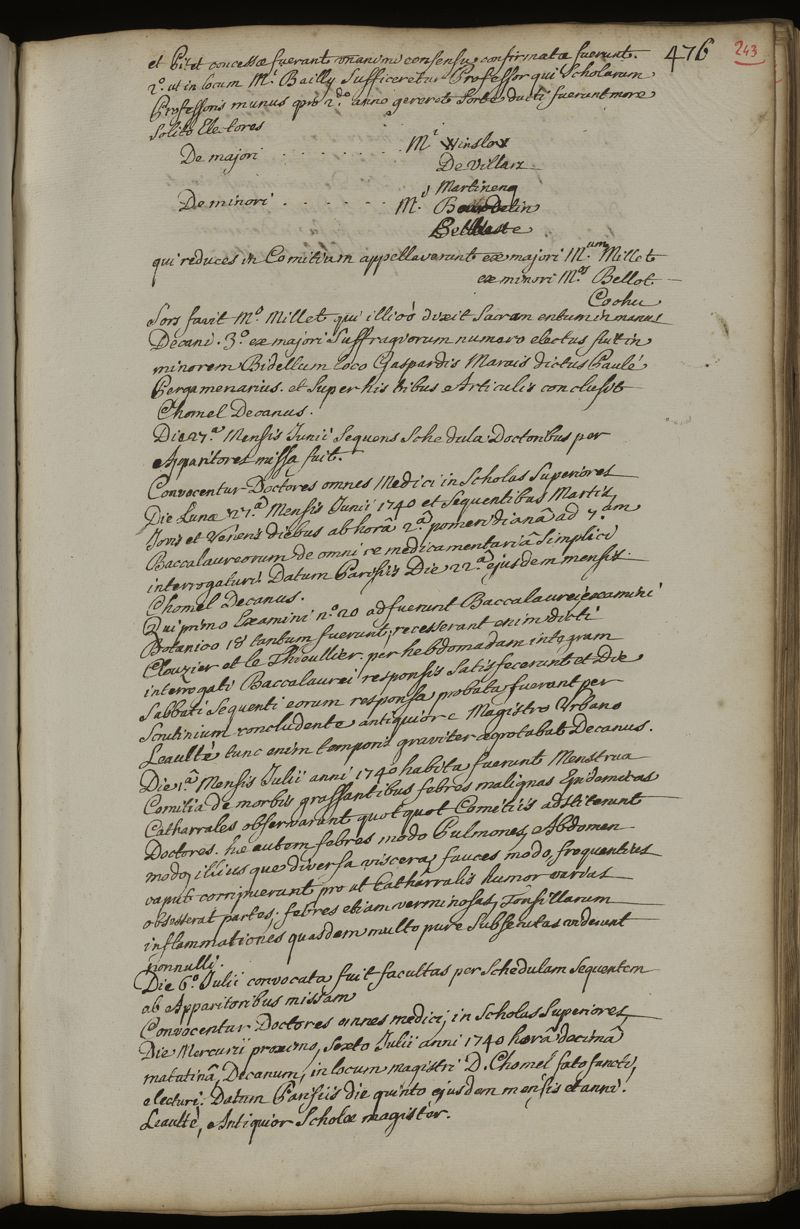 476
243
et concessæ fuerant unanimi consensu confirmatæ fuerunt.
2.º ut in locum M.i Bailly Sufficeretur Professor qui Scholarum
Professoris munus pro 2.do anno gereret Sorte ducti fuerunt more
Solito Electores
De majori . . . . . . . . M.i Winslow
De Villars
Martinenq
De minori . . . . . . . . M.i Bourdelin
Belleteste
qui reduces in Comitium appellaverunt ex majori M.um Millet
ex minori M.os Bellot
Cochu
Sors favit M.o Millet qui illico duxit Sacramentum in manus
Decani. 3.º ex majori Suffragiorum numero electus fuit in
minorem Bidellum loco Gaspardis Marais dictus Paulé
Pergamenarius. et Super his tribus Articulis conclusit
Chomel Decanus.
Die 27.a Mensis Junii Sequens Schedula Doctoribus per
Apparitores missa fuit.
Convocentur Doctores omnes Medici in Scholas Superiores
Die Lunæ 27.a Mensis Junii 1740 et Sequentibus Martis,
Jovis et Veneris diebus ab horâ 2.a pomeridianâ ad 7.am
Baccalaureorum de omni re medicamentariâ Simplici
interrogaturi. Datum Parisiis Die 22.a ejusdem mensis.
Chomel Decanus.
Qui primo Examini n.º 20 adfuerunt Baccalaurei examini
Botanico 18 tantum fuerunt; recesserant enim dicti
Clouzier et le Thieullier. per hebdomadam integram
interrogati Baccalaurei responsis Satisfecerunt et Die
Sabbati Sequenti eorum responsa probata fuerunt per
Scrutinium concludente antiquiore Magistro Urbano
Leaulté tunc enim temporis graviter ægrotabat Decanus.
Die 1.a Mensis Julii anni 1740 habita fuerunt Menstrua
Comitia de morbis grassantibus febres malignas Epidemicas
Catharrales observarunt quotquot Comitiis adstiterunt
Doctores. hæ autem febres modo Pulmones, Abdomen
modo, illiusque diversa viscera, fauces modo, frequentius
caput corripuerunt pro ut Catharralis humor varias
obsesserat partes; febres etiam verminosas, Tonsillarum
inflammationes quasdam multo pure Subsecutas viderunt
nonnulli.
Die 6.a Julii convocata fuit facultas per Schedulam Sequentem
ab Apparitoribus missam
Convocentur Doctores omnes medici, in Scholas Superiores,
Die Mercurii proximo, Sexto Julii anni 1740 horâ decimâ
matutinâ, Decanum, in locum magistri D. Chomel fato functi,
electuri. Datum Parisiis die quinto ejusdem mensis et anni.
Leaulté, Antiquior Scholæ magister.